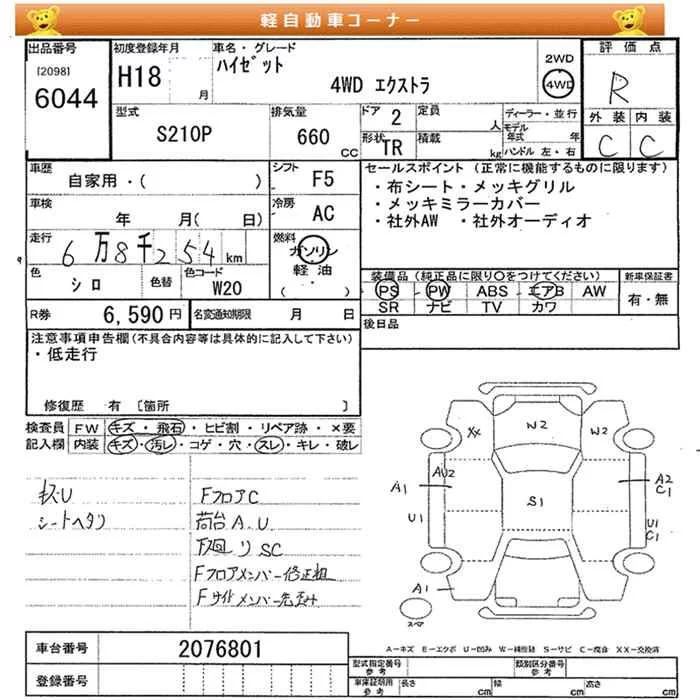 軽自動車コーナー
出品番号
[2098]
6044
初度登録年月
H18
月
車名・グレード
ハイゼット
4WD エクストラ
2WD
4WD
評価点
R
外装 内装
C C
型式
S210P
排気量
660
CC
ドア 2
定員
人
形状 TR
積載
kg
ディーラー・並行
モデル年式 年
ハンドル 左・右
車歴
自家用・( )
シフト F5
車検
年 月( 日)
冷房 AC
走行
6万8千254km
燃料
ガソリン
軽油
( )
色
シロ
色替
色コード
W20
セールスポイント (正常に機能するものに限ります)
・布シート・メッキグリル
・メッキミラーカバー
・社外AW ・社外オーディオ
装備品(純正品に限り○をつけてください)
PS PW ABS エアB AW
SR ナビ TV カワ
新車保証書
有・無
R券 6,590円
名変通知期限 月 日
後日品
注意事項申告欄(不具合内容等は具体的に記入して下さい)
・低走行
修復歴 有 〔箇所 〕
検査員記入欄
FW キズ・飛石・ヒビ割・リペア跡・×要
内装 キズ・汚レ・コゲ・穴・スレ・キレ・破レ
キズU
シートヘタリ
FフロアC
荷台A.U
下廻りSC
Fフロアメンバー修正粗
XX
W2
W2
AU2
A1
U1
S1
A2
C1
U1
C1
A1
スペア
A-キズ E-エクボ U-凹み W-補修跡 S-サビ C-腐食 XX-交換済
車台番号 2076801
登録番号
型式指定番号
参考
類別区分番号
参考
車庫証明用
参考
長さ cm
幅 cm
高さ cm